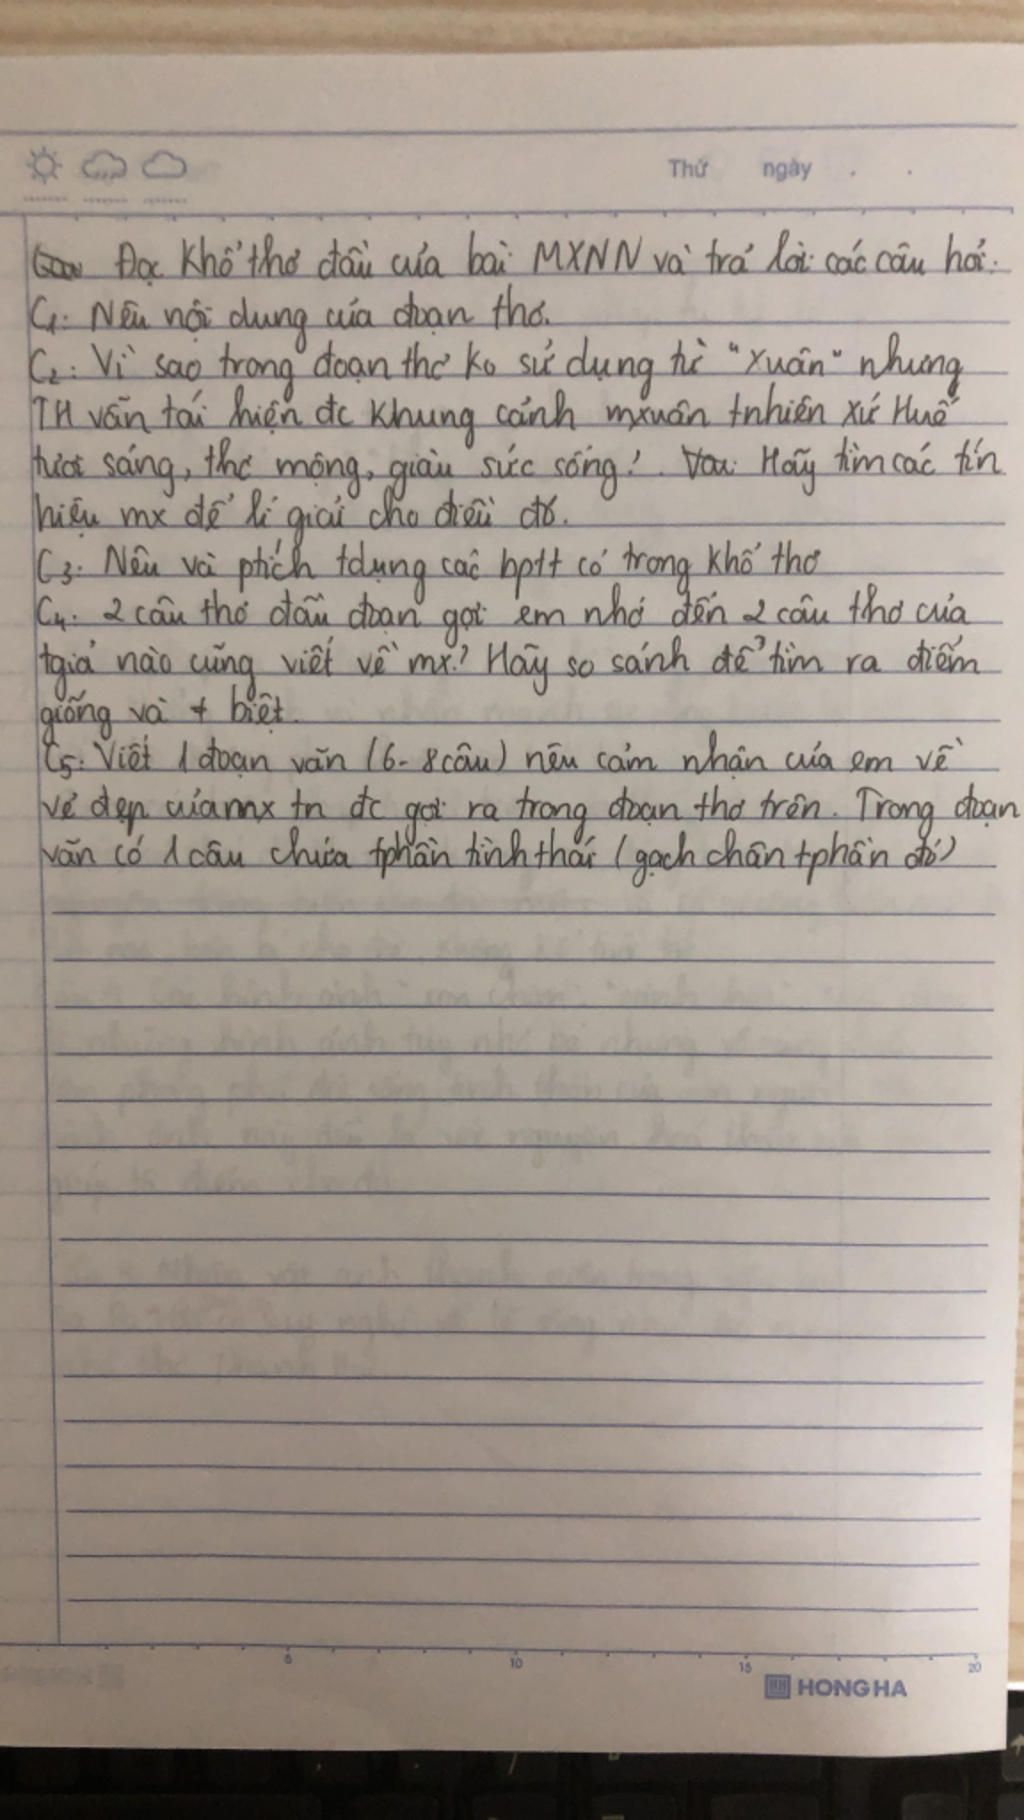 Thứ ngày . .
Đọc khổ thơ đầu của bài MXNN và trả lời các câu hỏi.
C1. Nêu nội dung của đoạn thơ.
C2. Vì sao trong đoạn thơ ko sử dụng từ "xuân" nhưng
TH vẫn tái hiện đc khung cảnh mxuân tnhiên xứ Huế
tươi sáng, thơ mộng, giàu sức sống? Hãy tìm các tín
hiệu mx để lí giải cho điều đó.
C3. Nêu và ptích tdụng các bptt có trong khổ thơ
C4. 2 câu thơ đầu đoạn gợi em nhớ đến 2 câu thơ của
tgiả nào cũng viết về mx? Hãy so sánh để tìm ra điểm
giống và ≠ biệt.
C5. Viết 1 đoạn văn (6-8 câu) nêu cảm nhận của em về
vẻ đẹp của mx tn đc gợi ra trong đoạn thơ trên. Trong đoạn
văn có 1 câu chứa tphần tình thái (gạch chân tphần đó)
5 10 15 20
HONG HA